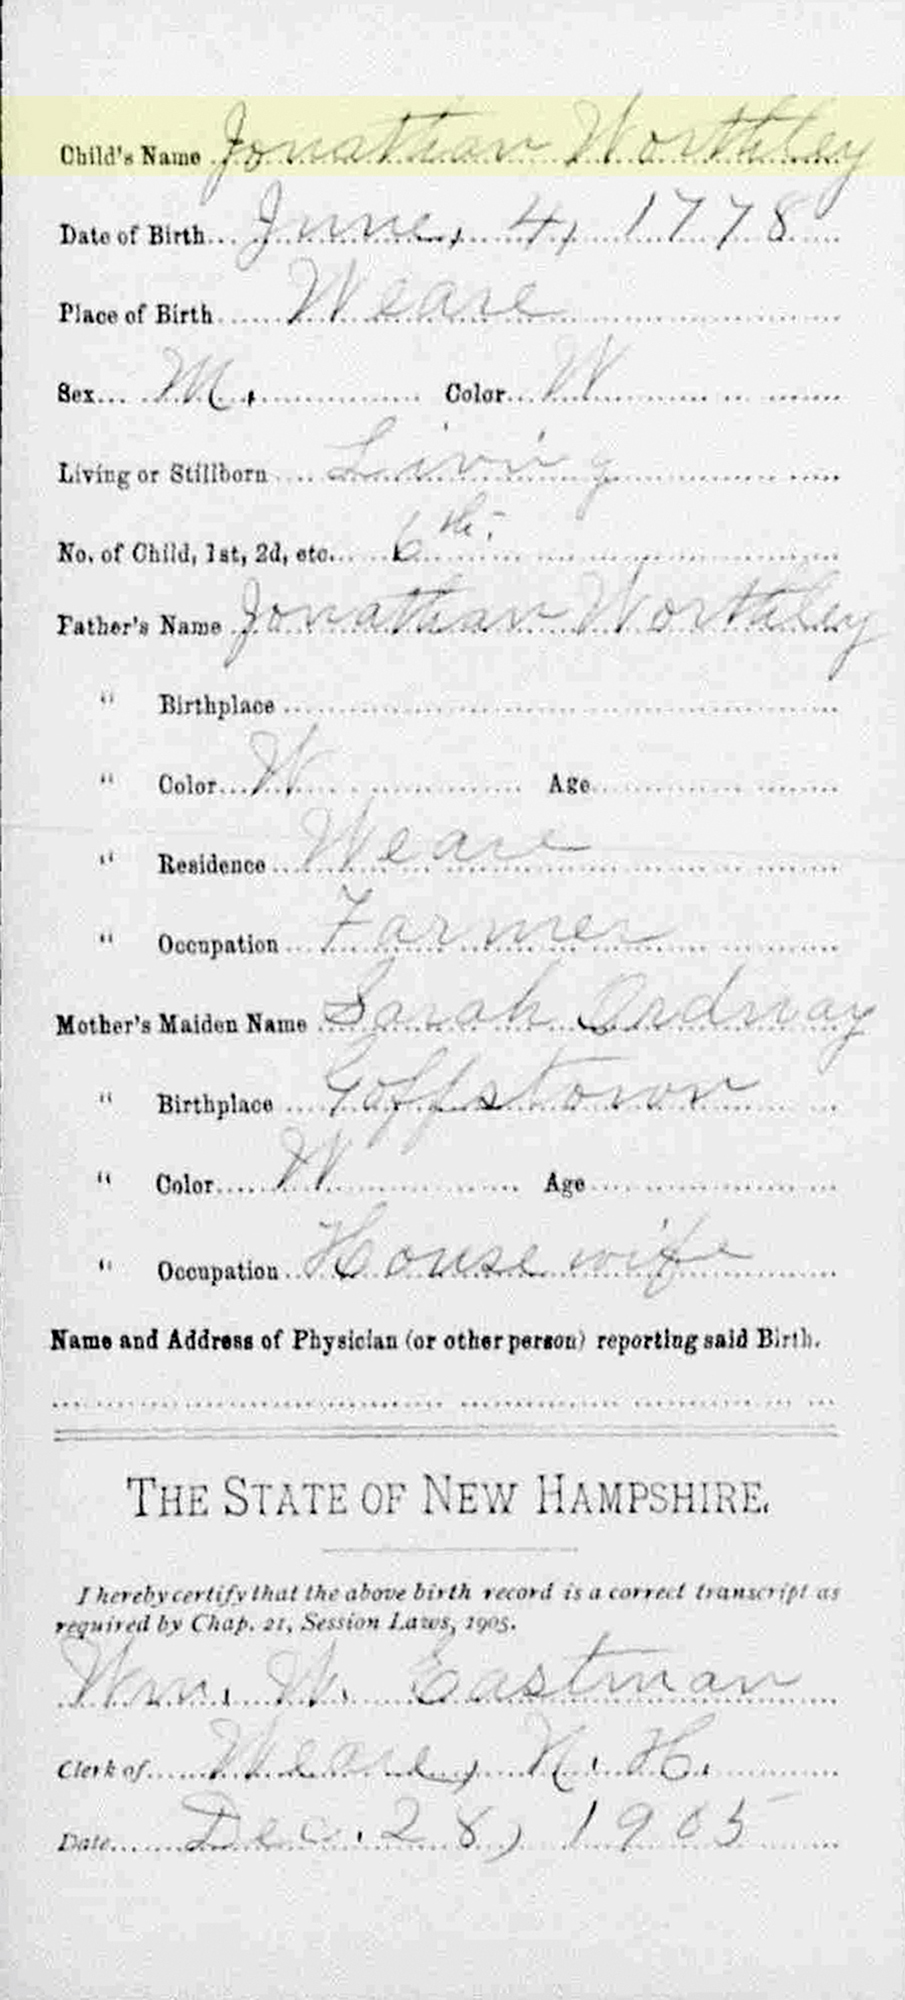 Child's Name Jonathan Worthley
Date of Birth June, 4, 1778
Place of Birth Weare
Sex M. Color W
Living or Stillborn Living
No. of Child, 1st, 2d, etc. 6th.
Father's Name Jonathan Worthley
" Birthplace
" Color W Age
" Residence Weare
" Occupation Farmer
Mother's Maiden Name Sarah Ordway
" Birthplace Goffstown
" Color W Age
" Occupation Housewife
Name and Address of Physician (or other person) reporting said Birth.
THE STATE OF NEW HAMPSHIRE.
I hereby certify that the above birth record is a correct transcript as
required by Chap. 21, Session Laws, 1905.
Wm. W. Eastman
Clerk of Weare, N. H.
Date Dec. 28, 1905